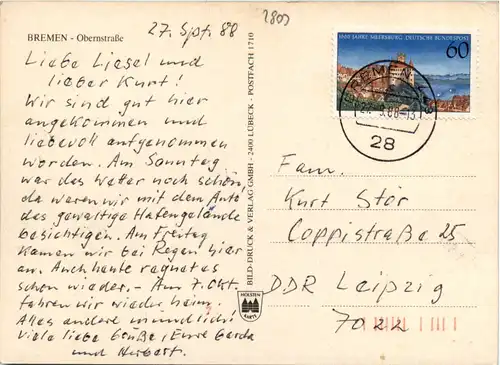 BREMEN - Obernstraße
27. Spt. 88
2803
Liebe Liesel und
lieber Kurt!
Wir sind gut hier
angekommen und
liebevoll aufgenommen
worden. Am Sonntag
war das Wetter noch schön
da waren wir mit dem Auto
das gewaltige Hafengelände
besichtigen. Am Freitag
kamen wir bei Regen hier
an. Auch heute regnet es
schon wieder. - Am 7. Okt.
fahren wir wieder heim.
Alles andere mündlich!
Viele liebe Grüße, Eure Gerda
und Herbert.
BILD-DRUCK & VERLAG GMBH - 2400 LÜBECK - POSTFACH 1710
HOLSTEN
KARTE
1000 JAHRE MEERSBURG DEUTSCHE BUNDESPOST
60
BREMEN
28
Fam.
Kurt Stör
Coppistraße 25
DDR Leipzig
7022